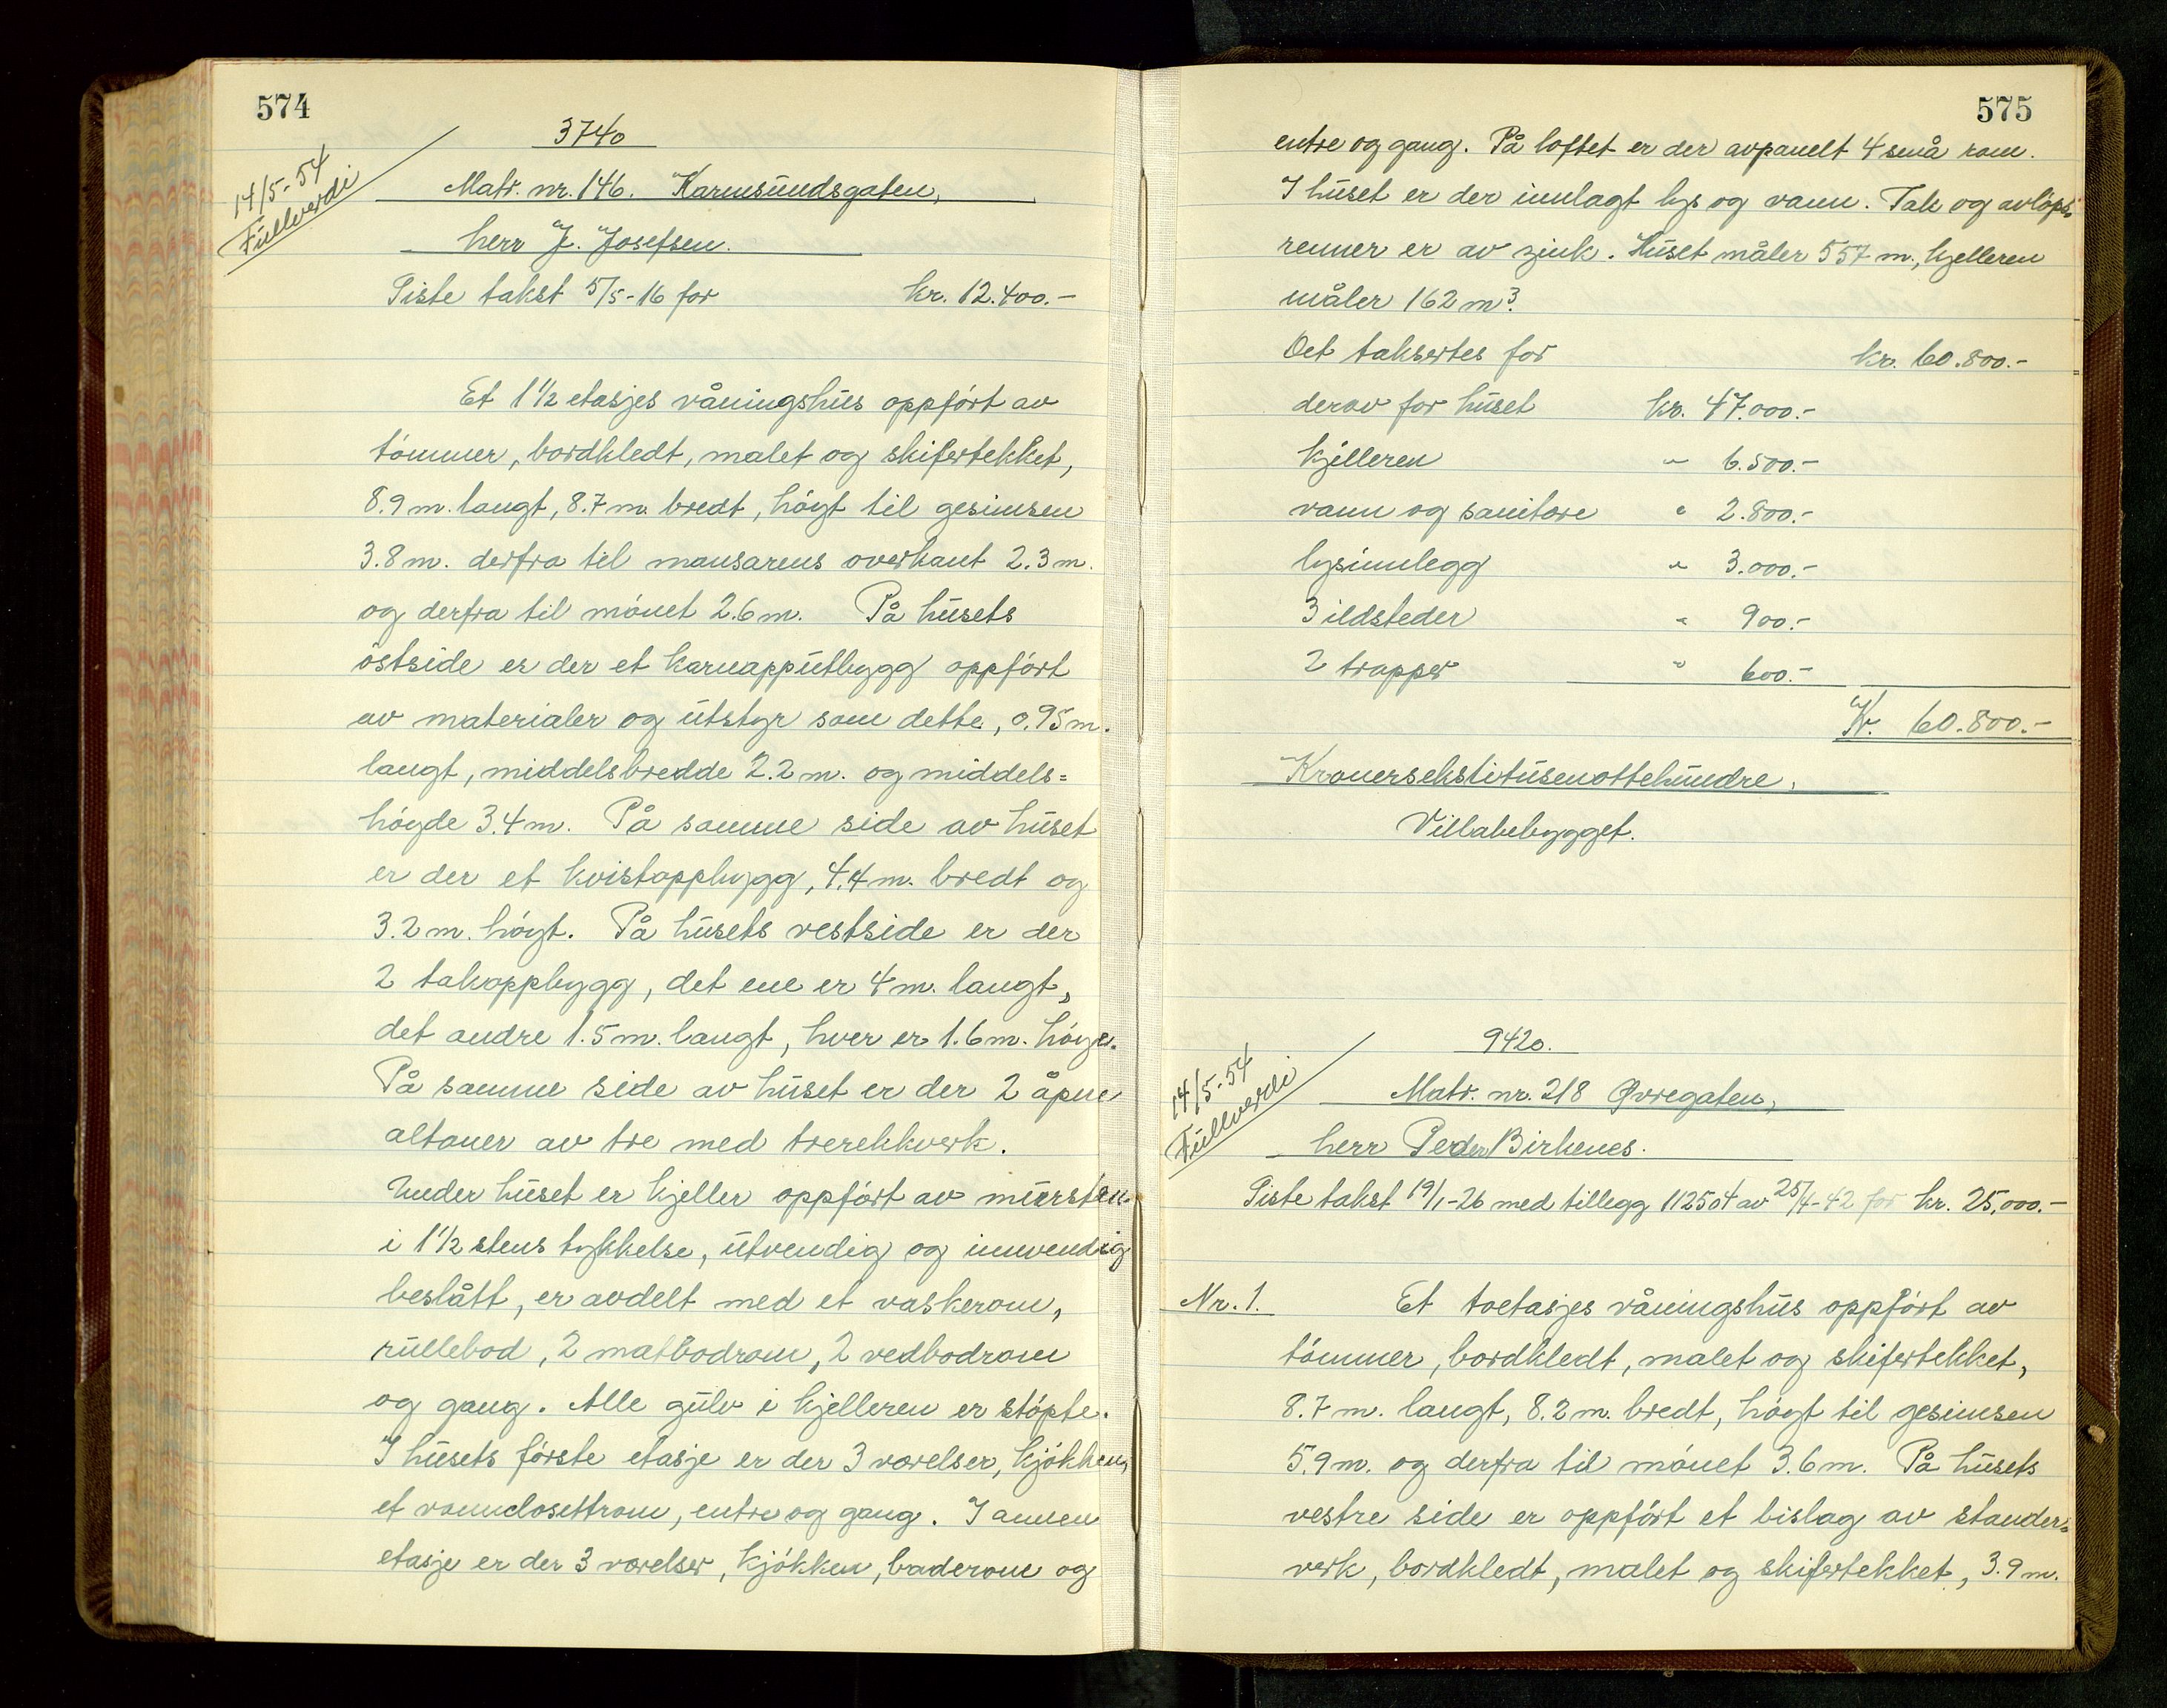 574
3740
14/5-54
Fullverdi
Matr. nr. 146. Karmsundsgaten,
herr J. Josefsen.
Siste takst 5/5-16 for kr. 12.400.-
Et 1 1/2 etasjes våningshus oppført av
tømmer, bordkledt, malet og skifertekket,
8.9 m. langt, 8.7 m. bredt, høgt til gesimsen
3.8 m. derfra til mansarens overkant 2.3 m.
og derfra til mønet 2.6 m. På husets
østside er der et karnapputbygg oppført
av materialer og utstyr som dette, 0.95 m.
langt, middelsbredde 2.2 m. og middels=
høgde 3.4 m. På samme side av huset
er der et kvistoppbygg, 4.4 m. bredt og
3.2 m. høgt. På husets vestside er der
2 takoppbygg, det ene er 4 m. langt,
det andre 1.5 m. langt, hver er 1.6 m. høge.
På samme side av huset er der 2 åpne
altaner av tre med trerekkverk.
Under huset er kjeller oppført av mursten
i 1 1/2 stens tykkelse, utvendig og innvendig
beslått, er avdelt med et vaskerom,
rullebod, 2 matbodrom, 2 vedbodrom
og gang. Alle gulv i kjelleren er støpte.
I husets første etasje er der 3 værelser, kjøkken,
et vannclosettrom, entre og gang. I annen
etasje er der 3 værelser, kjøkken, baderom og
575
entre og gang. På loftet er der avpanelt 4 små rom.
I huset er der innlagt lys og vann. Tak og avløps=
renner er av zink. Huset måler 557 m., kjelleren
måler 162 m3.
Det taksertes for kr. 60.800.-
derav for huset kr. 47.000.-
kjelleren " 6.500.-
vann og sanitære " 2.800.-
lysinnlegg " 3.000.-
3 ildsteder " 900.-
2 trapper " 600.-
Kr. 60.800.-
Kronersekstitusenottehundre,
Villabebygget.
9420.
14/5-54
Fullverdi
Matr. nr. 218 Øvregaten,
herr Peder Birkenes.
Siste takst 19/1-26 med tillegg 11250 av 25/4-42 for kr. 25,000.-
Nr. 1. Et toetasjes våningshus oppført av
tømmer, bordkledt, malet og skifertekket,
8.7 m. langt, 8.2 m. bredt, høgt til gesimsen
5.9 m. og derfra til mønet 3.6 m. På husets
vestre side er oppført et bislag av stander=
verk, bordkledt, malet og skifertekket, 3.9 m.